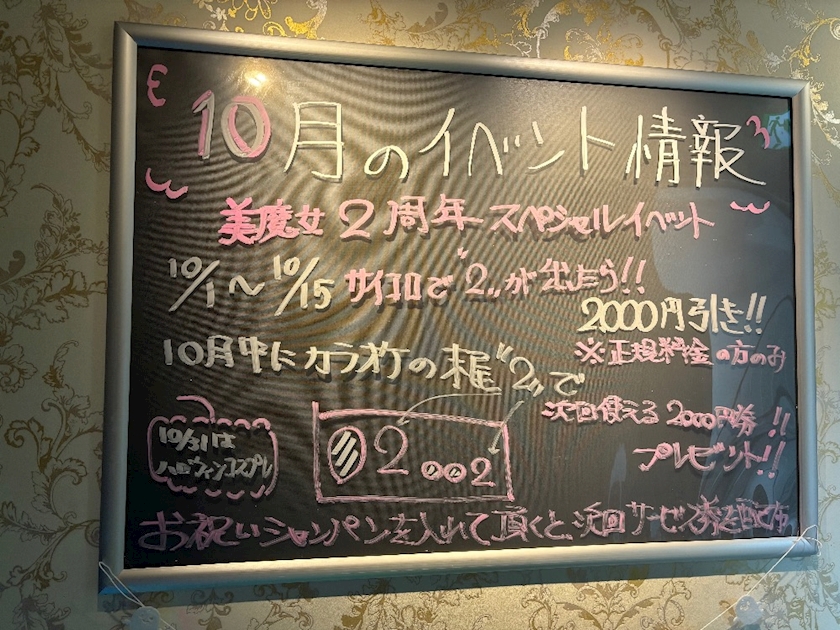 10月のイベント情報
美度女2周年スペシャルイベント
10/1〜10/15 サイコロで"2"が出たら!!
2000円引き!!
※正規料金の方のみ
10月中にカラオケの末尾"2"で
次回使える2000円券!!
プレゼント!!
10/31は
ハロウィンコスプレ
2
2
お祝いシャンパンを入れて頂くと次回サービス券を配布